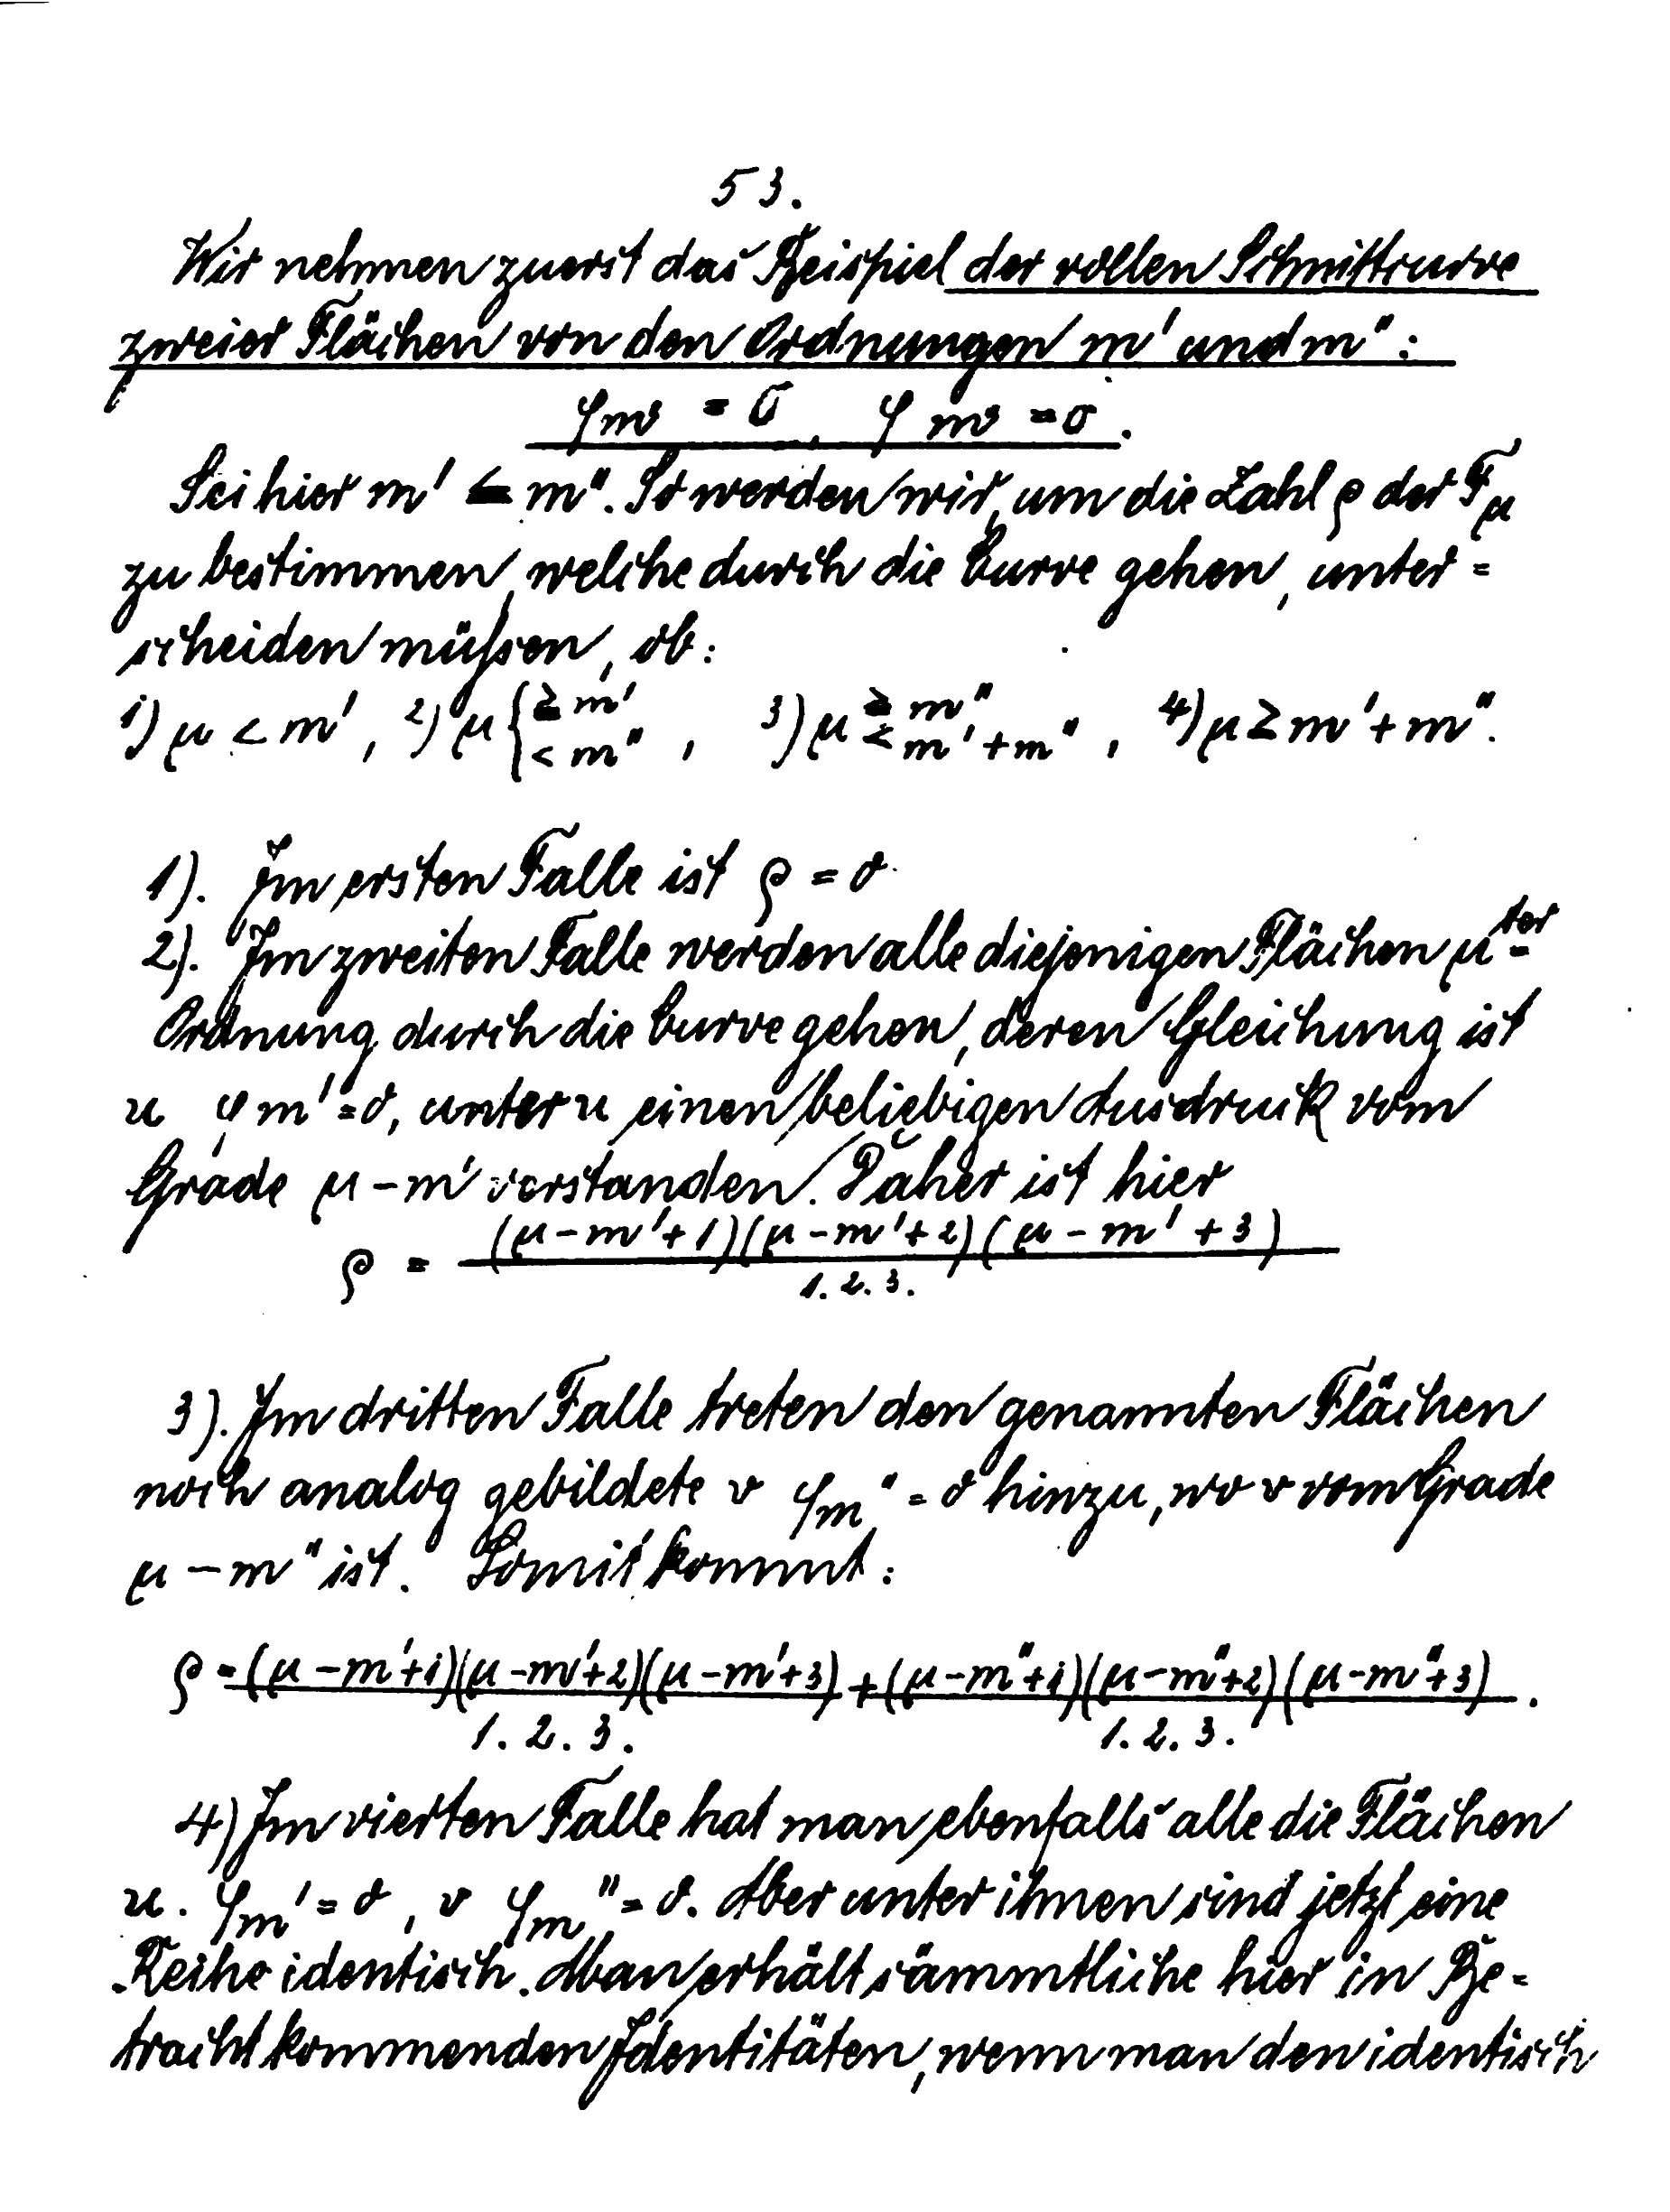 53.
Wir nehmen zuerst das Beispiel der vollen Schnittcurve
zweier Flächen von den Ordnungen m' und m":
φm' = 0, φm" = 0.
Sei hier m' ≤ m". So werden wir, um die Zahl ρ der Fμ
zu bestimmen, welche durch die Curve gehen, unter=
scheiden müssen, ob:
1) μ < m', 2) μ { ≥ m' < m", 3) μ ≥ m" < m'+m", 4) μ ≥ m'+m".
1). Im ersten Falle ist ρ = 0.
2). Im zweiten Falle werden alle diejenigen Flächen μter
Ordnung durch die Curve gehen, deren Gleichung ist
u φm' = 0, unter u einen beliebigen Ausdruck vom
Grade μ – m' verstanden. Daher ist hier
ρ = (μ – m' + 1)(μ – m' + 2)(μ – m' + 3)
1. 2. 3.
3). Im dritten Falle treten den genannten Flächen
noch analog gebildete v φm" = 0 hinzu, wo v vom Grade
μ – m" ist. Somit kommt:
ρ = (μ – m'+1)(μ – m'+2)(μ – m'+3) + (μ – m"+1)(μ – m"+2)(μ – m"+3).
1. 2. 3. 1. 2. 3.
4) Im vierten Falle hat man ebenfalls alle die Flächen
u. φm' = 0, v φm" = 0. Aber unter ihnen sind jetzt eine
Reihe identisch. Man erhält sämmtliche hier in Be-
tracht kommenden Identitäten, wenn man den identisch